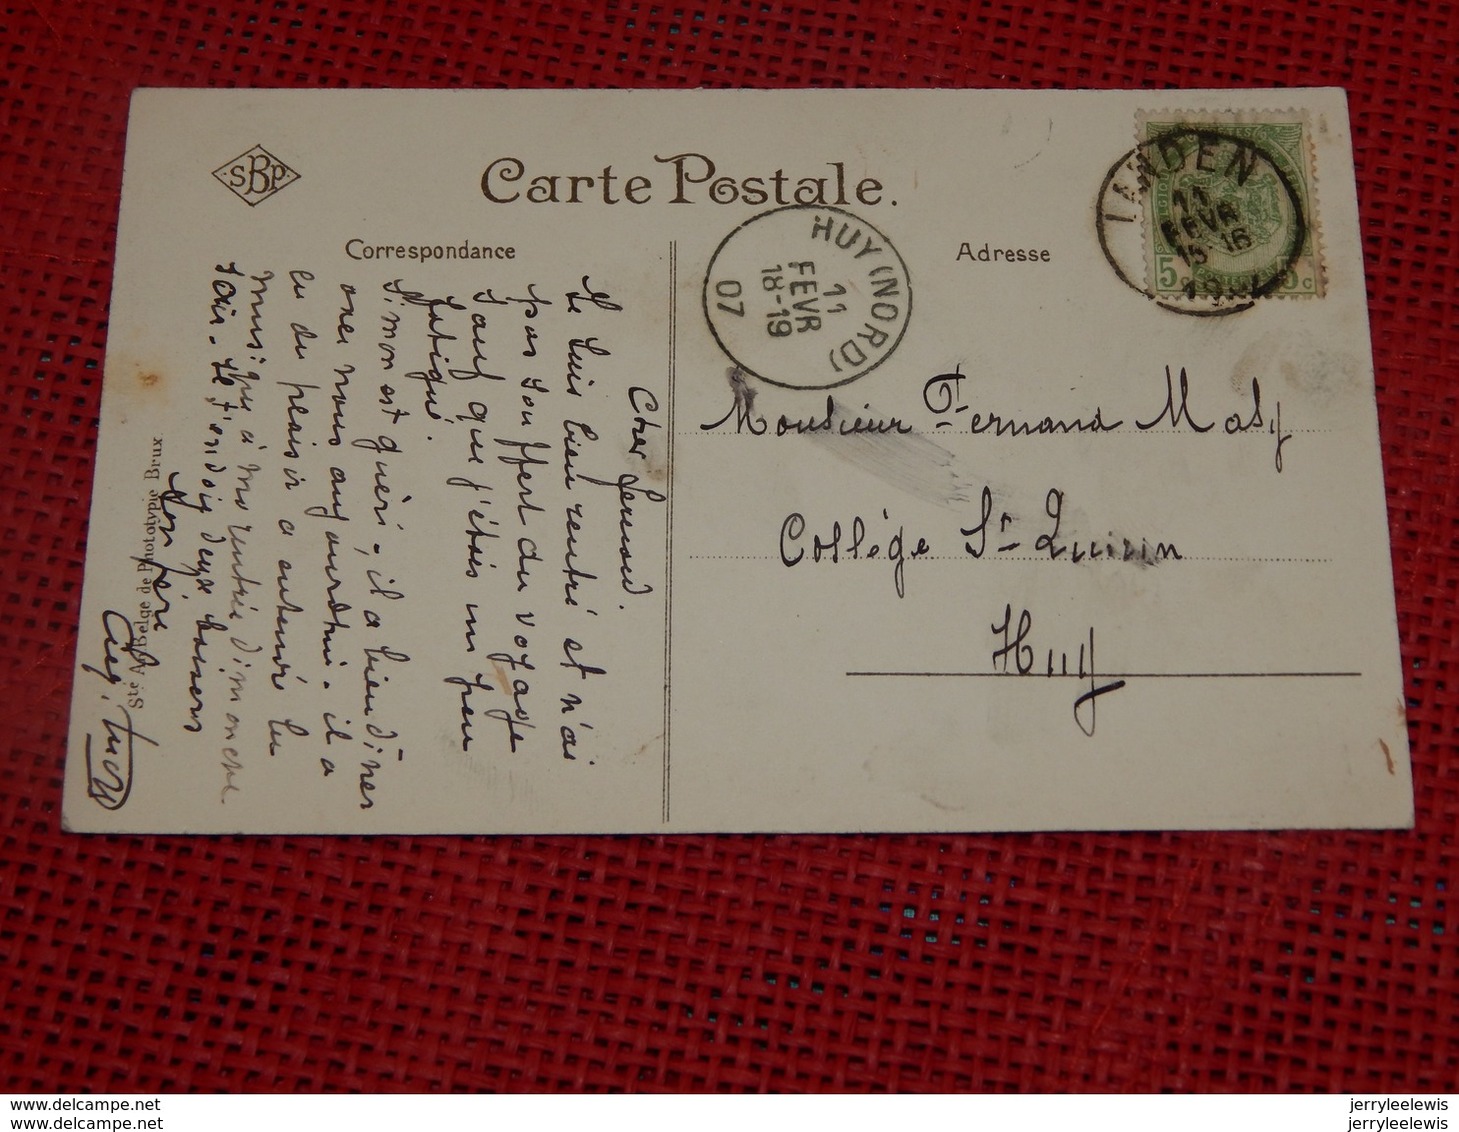 SBP
Carte Postale.
Correspondance
Adresse
LANDEN
11
FEVR
15-16
5c 5c
HUY (NORD)
11
FEVR
18-19
07
Monsieur Fernand Masy
Collège St Quirin
Huy
Cher Fernand.
Je suis bien rentré et n'ai
pas souffert du voyage
sauf que j'étais un peu
fatigué.
Simon est guéri. il a bien dîner
avec nous aujourd'hui. il a
eu du plaisir a entendre la
musique à ma rentrée dimanche
soir. Je t'envoie deux baisers
Ton père
Sté A. Belge de Phototypie Brux
www.delcampe.net
www.delcampe.net
jerryleelewis
jerryleelewis